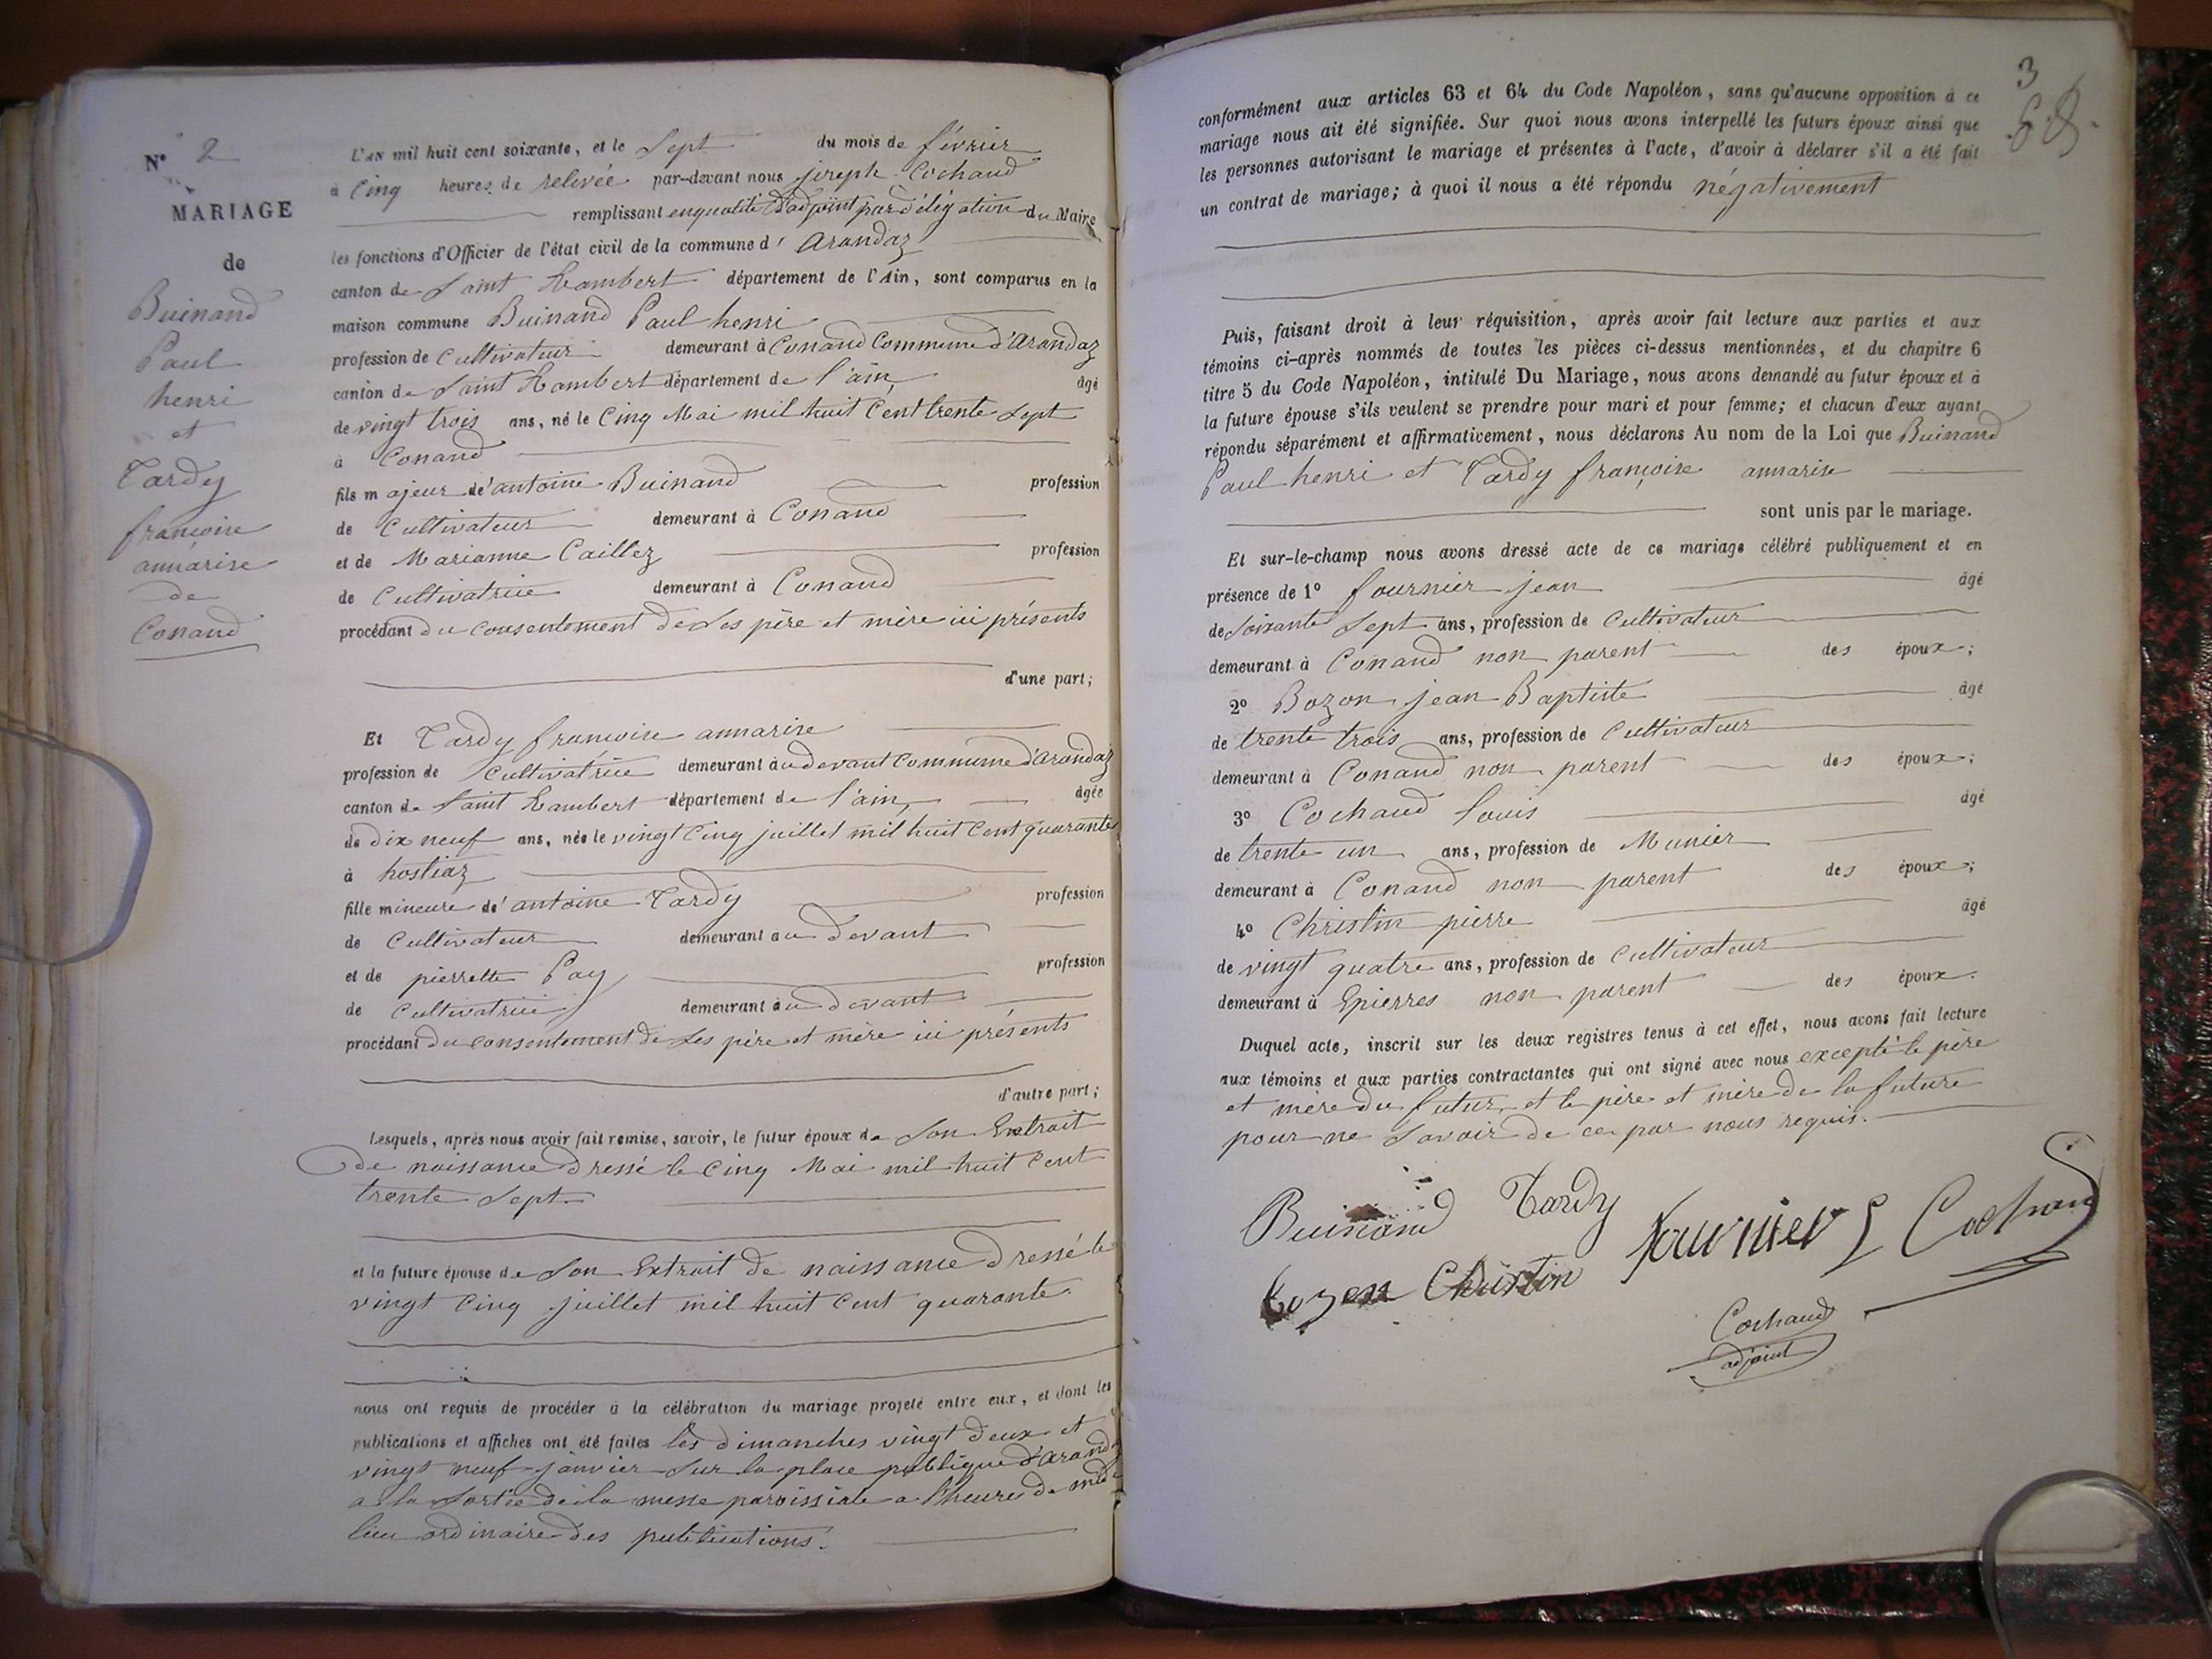 N° 2
MARIAGE
de
Buinand
Paul
henri
et
Tardy
francoise
annarise
de
Conand
L'AN mil huit cent soixante, et le Sept du mois de février
à Cinq heures de relevée par-devant nous joseph Cochaud
remplissant enqualité d'adjoint par délégation du Maire
les fonctions d'Officier de l'état civil de la commune d' Arandaz
canton de Saint Rambert département de l'Ain, sont comparus en la
maison commune Buinand Paul henri
profession de Cultivateur demeurant à Conand Commune d'Arandaz
canton de Saint Rambert département de l'ain, âgé
de vingt trois ans, né le Cinq Mai mil huit Cent trente Sept
à Conand
fils majeur de' antoine Buinand profession
de Cultivateur demeurant à Conand
et de Marianne Caillez profession
de Cultivatrice demeurant à Conand
procédant du consentement de Ses père et mère ici présents
d'une part;
Et Tardy francoise annarise
profession de Cultivatrice demeurant àudevant Commune d'Arandaz
canton de Saint Rambert département de l'ain, âgée
de dix neuf ans, née le vingt Cinq juillet mil huit Cent quarante
à hostiaz
fille mineure de' antoine Tardy profession
de Cultivateur demeurant au devant
et de pierrette Pay profession
de Cultivatrice demeurant àu devant
procédant du consentement de Ses père et mère ici présents
d'autre part;
Lesquels, après nous avoir fait remise, savoir, le futur époux de Son Extrait
de naissance dressé le Cinq Mai mil huit Cent
trente Sept.
et la future épouse de Son Extrait de naissance dressé le
vingt Cinq juillet mil huit Cent quarante.
nous ont requis de procéder à la célébration du mariage projeté entre eux, et dont les
publications et affiches ont été faites les dimanches vingt deux et
vingt neuf janvier Sur la place publique d'Arand
a la Sortie de la messe paroissiale a l'heure de midi
lieu ordinaire des publications.
3
68
conformément aux articles 63 et 64 du Code Napoléon, sans qu'aucune opposition à ce
mariage nous ait été signifiée. Sur quoi nous avons interpellé les futurs époux ainsi que
les personnes autorisant le mariage et présentes à l'acte, d'avoir à déclarer s'il a été fait
un contrat de mariage; à quoi il nous a été répondu négativement
Puis, faisant droit à leur réquisition, après avoir fait lecture aux parties et aux
témoins ci-après nommés de toutes les pièces ci-dessus mentionnées, et du chapitre 6
titre 5 du Code Napoléon, intitulé Du Mariage, nous avons demandé au futur époux et à
la future épouse s'ils veulent se prendre pour mari et pour femme; et chacun d'eux ayant
répondu séparément et affirmativement, nous déclarons Au nom de la Loi que Buinand
Paul henri et Tardy françoise annarise
sont unis par le mariage.
Et sur-le-champ nous avons dressé acte de ce mariage célébré publiquement et en
présence de 1° fournier jean âgé
de Soixante Sept ans, profession de Cultivateur
demeurant à Conand non parent des époux;
2° Bozon jean Baptiste âgé
de trente trois ans, profession de Cultivateur
demeurant à Conand non parent des époux;
3° Cochaud louis âgé
de trente un ans, profession de Munier
demeurant à Conand non parent des époux;
4° Christin pierre âgé
de vingt quatre ans, profession de Cultivateur
demeurant à Epierres non parent des époux.
Duquel acte, inscrit sur les deux registres tenus à cet effet, nous avons fait lecture
aux témoins et aux parties contractantes qui ont signé avec nous excepté le père
et mère du futur, et le père et mère de la future
pour ne Savoir de ce par nous requis.
Buinand Tardy fournier L Cochaud
bozon Christin
Cochaud
adjoint